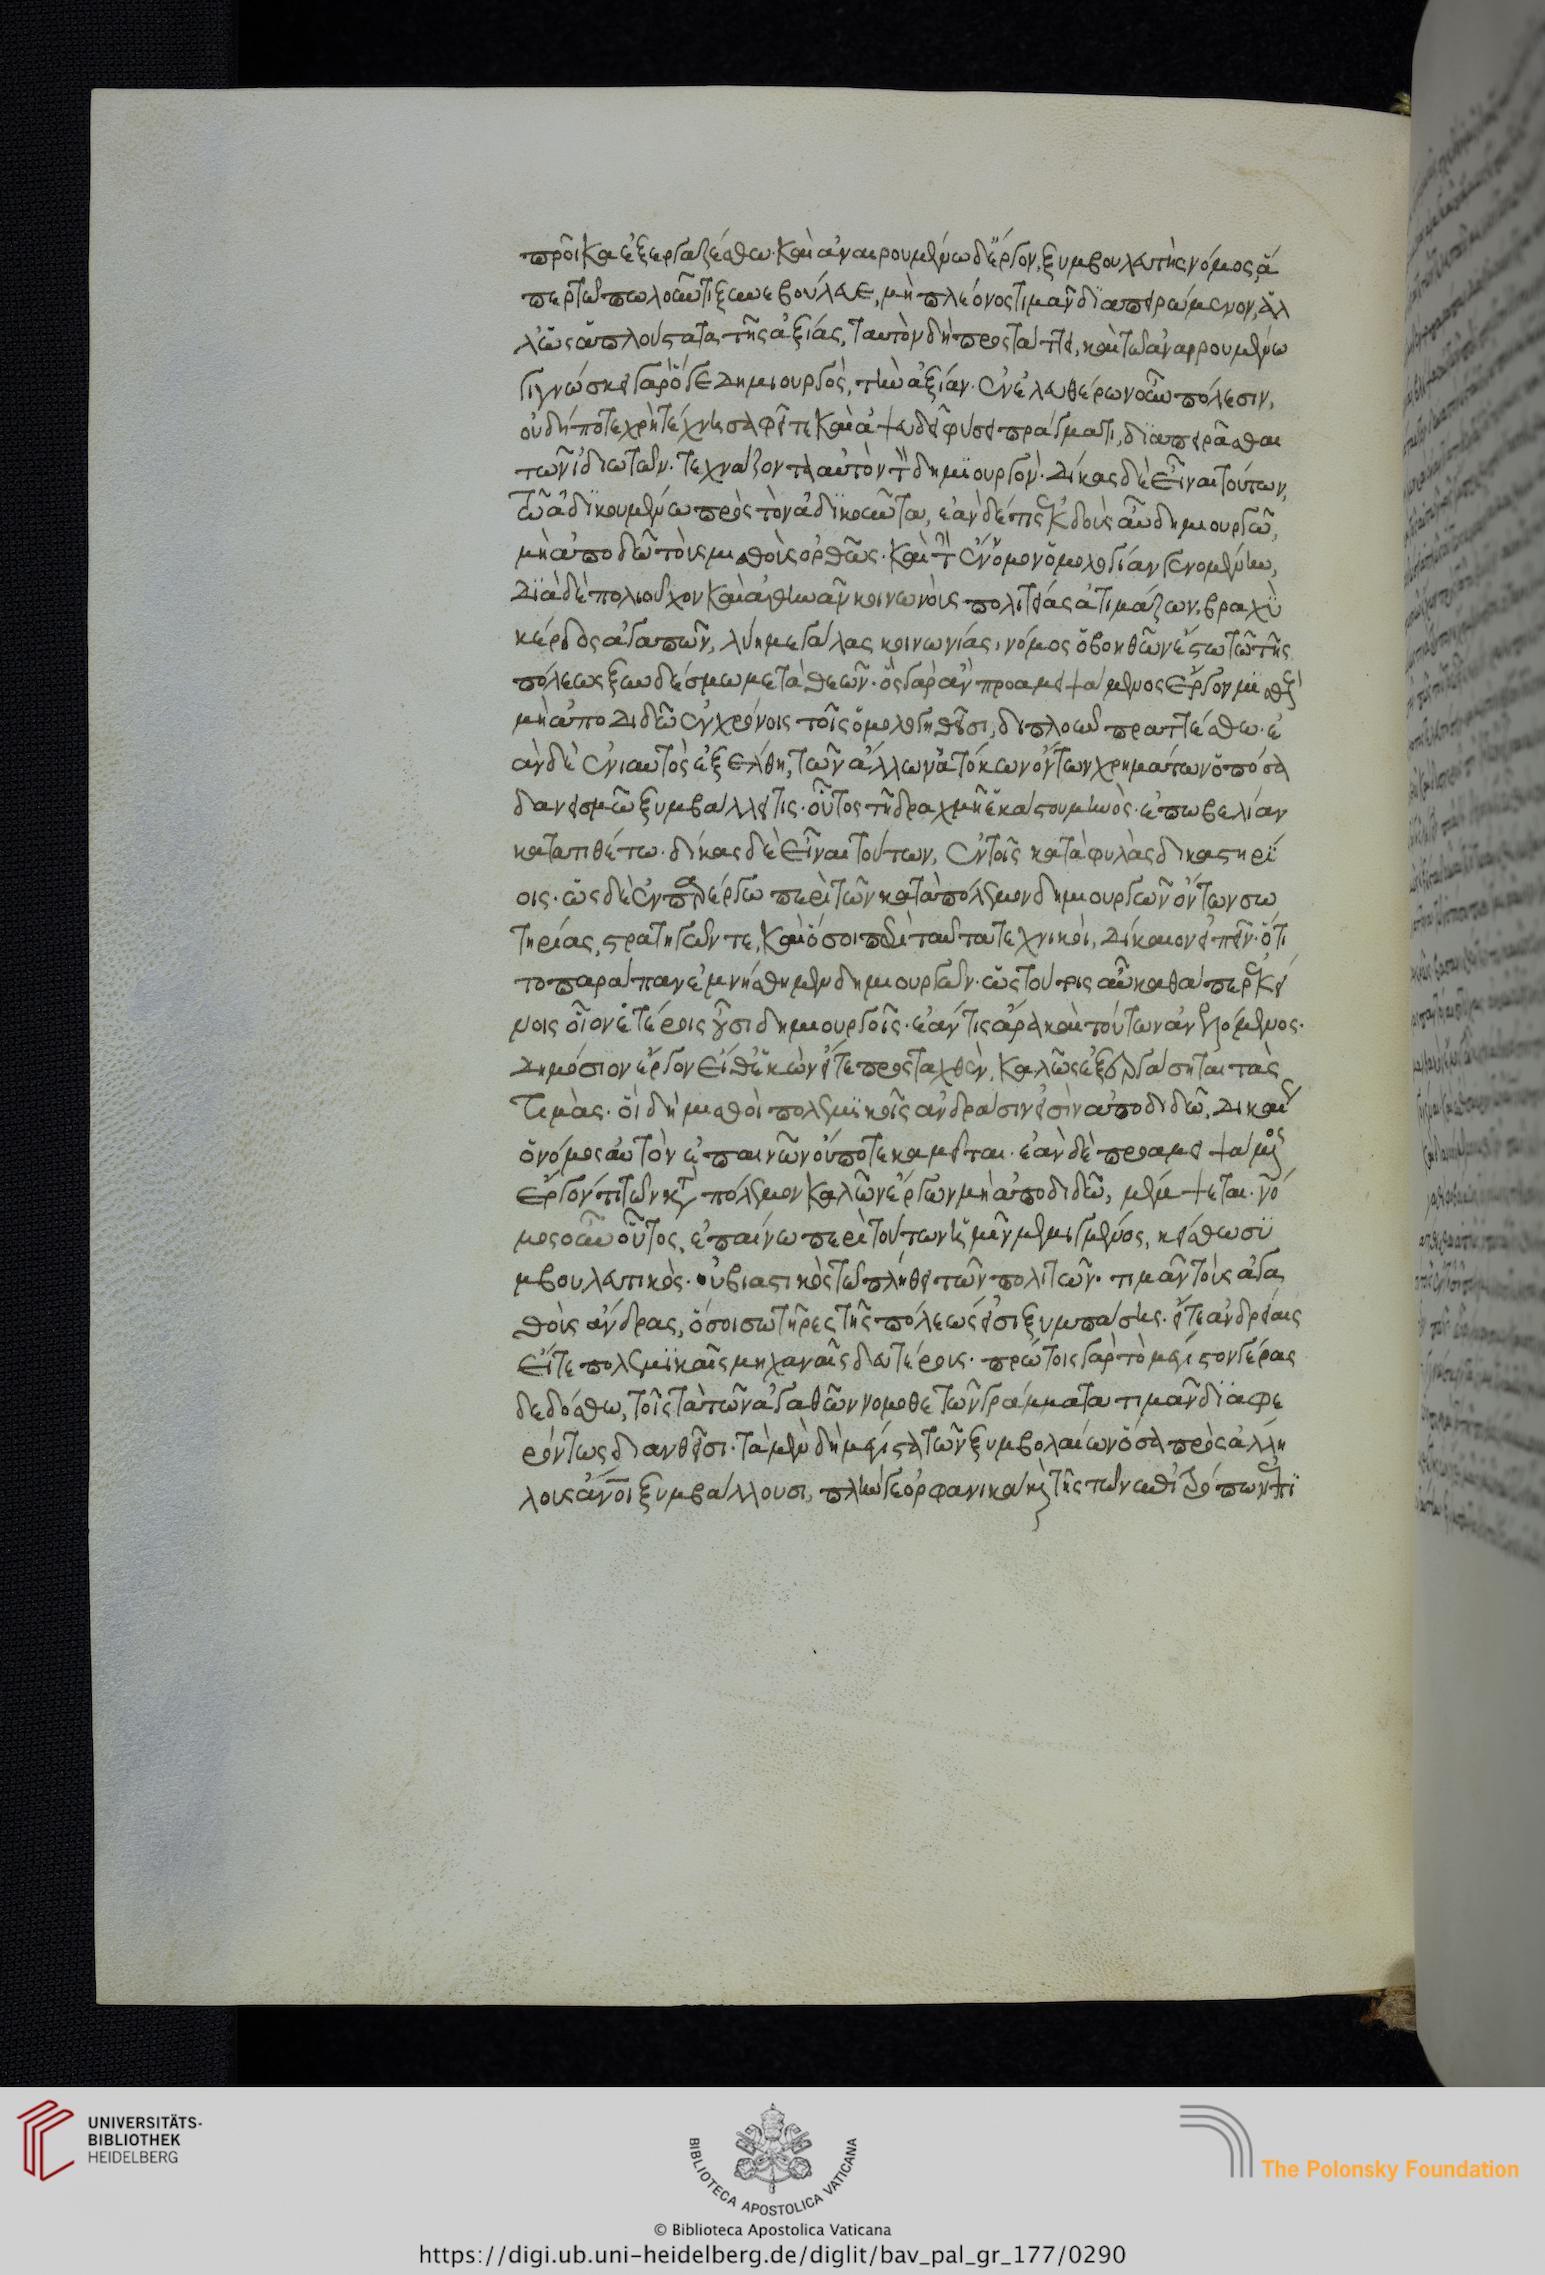 προῖκα ἐξεργαζέσθω· καὶ ἀναιρουμένω δ' ἔργον, ξυμβουλευτὴς νόμος, ἅ
περ τῶ πωλοῦντι ξυνεβούλευε, μὴ πλέονος τιμᾶν διαπειρώμενον, ἀλ
λ' ὡς ἁπλούστατα τῆς ἀξίας, ταυτὸν δὴ προστάττει, καὶ τῶ ἀναιρουμένω
γιγνώσκει γὰρ ὅ γε δημιουργὸς, τὴν ἀξίαν. ἐν ἐλευθέρων οὖν πόλεσιν,
οὐ δή ποτε χρὴ τέχνη σαφεῖ τε καὶ ἀψευδεῖ φύσει πράγματι, διαπειρᾶσθαι
τῶν ἰδιωτῶν. τεχνάζοντα αὐτὸν τὸν δημιουργόν. δίκας δὲ εἶναι τούτων,
τῶ ἀδικουμένω πρὸς τὸν ἀδικοῦντα, ἐὰν δέ τις ἐκδοὺς αὖ δημιουργῶ,
μὴ ἀποδῶ τοὺς μισθοὺς ὀρθῶς. κατὰ τὴν ἔννομον ὁμολογίαν γενομένην,
Δία δὲ πολιοῦχον καὶ ἀθηνᾶν κοινωνοὺς πολιτείας ἀτιμάζων, βραχὺ
κέρδος ἀγαπῶν, λύη μεγάλας κοινωνίας, νόμος ὁ βοηθῶν ἔστω τῶ τῆς
πόλεως ξυνδέσμω μετὰ θεῶν. ὃς γὰρ ἂν προαμειψάμενος ἔργον μισθοὺς
μὴ ἀποδιδῶ ἐν χρόνοις τοῖς ὁμολογηθεῖσι, διπλοῦν πραττέσθω. ἐ
ὰν δὲ ἐνιαυτὸς ἐξέλθη, τῶν ἄλλων ἀτόκων ὄντων χρημάτων ὁπόσα
δανεισμῶ ξυμβάλλει τις. οὗτος τῆ δραχμῆ ἑκάστου μηνὸς. ἐπωβελίαν
κατατιθέτω. δίκας δὲ εἶναι τούτων, ἐν τοῖς κατὰ φυλὰς δικαστηρί
οις. ὡς δὲ ἐν παρέργω περὶ τῶν κατὰ πόλεμον δημιουργῶν ὄντων σω
τηρίας, στρατηγῶν τε, καὶ ὅσοι περὶ ταῦτα τεχνικοὶ, δίκαιον εἰπεῖν. ὅτι
τὸ παράπαν ἐμνήσθημεν δημιουργῶν. ὡς τούτοις αὖ καθάπερ ἐκεί
νοις οἷον ἑτέροις οὖσι δημιουργοῖς. ἐάν τις ἄρα καὶ τούτων ἀνελόμενος.
δημόσιον ἔργον εἴθ' ἑκὼν εἴτε προσταχθὲν, καλῶς ἐξεργάσηται τὰς
τιμὰς. οἳ δὴ μισθοὶ πολεμικοῖς ἀνδράσιν εἰσὶν ἀποδιδῶ, δικαίως
ὁ νόμος αὐτὸν ἐπαινῶν οὔποτε καμεῖται. ἐὰν δὲ προαμειψάμενος
ἔργόν τι τῶν κατὰ πόλεμον καλῶν ἔργων μὴ ἀποδιδῶ, μέμψεται. νό
μος οὖν οὗτος, ἐπαίνω περὶ τούτων ἡμῖν μεμιγμένος, κείσθω συ
μβουλευτικὸς. οὐ βιαστικὸς τῶ πλήθει τῶν πολιτῶν. τιμᾶν τοὺς ἀγα
θοὺς ἄνδρας, ὅσοι σωτῆρες τῆς πόλεώς εἰσι ξυμπάσης. εἴτε ἀνδρείαις
εἴτε πολεμικαῖς μηχαναῖς δευτέροις. πρώτοις γὰρ τὸ μέγιστον γέρας
δεδόσθω, τοῖς τὰ τῶν ἀγαθῶν νομοθετῶν γράμματα τιμᾶν διαφε
ρόντως δυνηθεῖσι. τὰ μὲν δὴ μέγιστα τῶν ξυμβολαίων ὅσα πρὸς ἀλλή
λους ἄνθρωποι ξυμβάλλουσι, πλήν γε ὀρφανικὰ καὶ τῆς τῶν ὀρφανῶν ἐπι
© Biblioteca Apostolica Vaticana
https://digi.ub.uni-heidelberg.de/diglit/bav_pal_gr_177/0290
UNIVERSITÄTS-
BIBLIOTHEK
HEIDELBERG
BIBLIOTECA APOSTOLICA VATICANA
The Polonsky Foundation